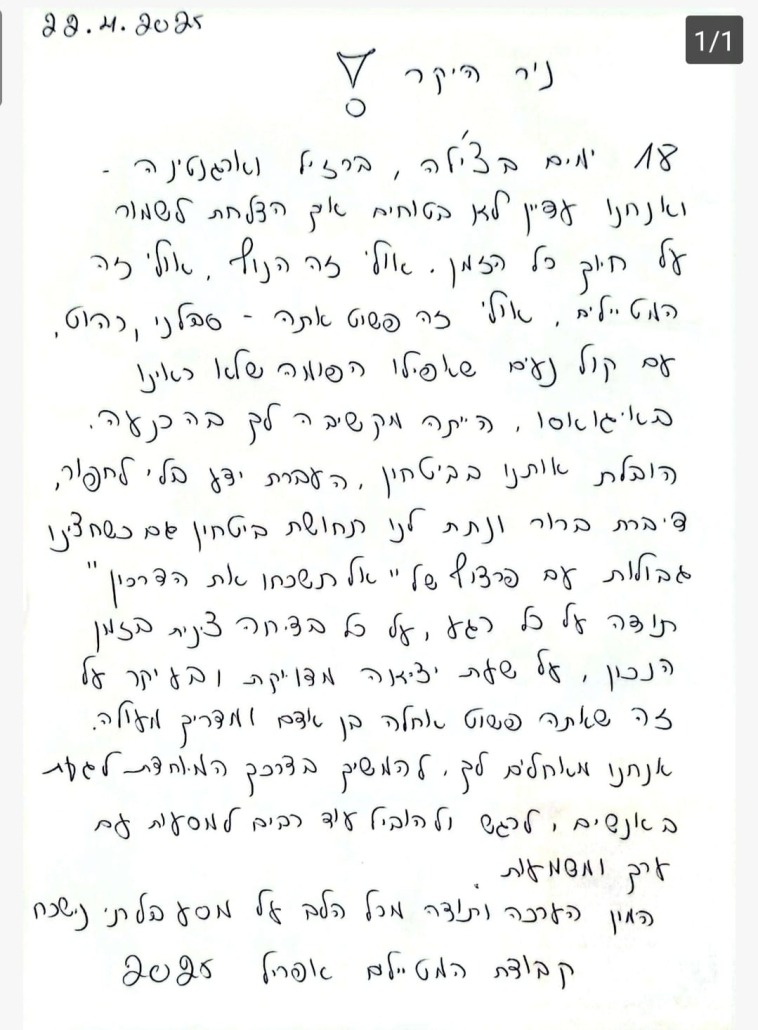 22.4.2025
1/1
ניר היקר!
18 ימים בצ'ילה, ברזיל וארגנטינה -
ואנחנו עדיין לא בטוחים איך הצלחת לשמור
על חיוך כל הזמן. אולי זה הנוף, אולי זה
המטיילים, אולי זה פשוט אתה - סבלני, רהוט,
עם קול נעים שאפילו הפומה שלא ראינו
באיגואסו, הייתה מקשיבה לך בהכנעה.
הובלת אותנו בביטחון, העברת ידע בלי לחפור,
דיברת ברור ונתת לנו תחושת ביטחון גם כשחצינו
גבולות עם פרצוף של "אל תשכחו את הדרכון"
תודה על כל רגע, על כל בדיחה צינית בזמן
הנכון, על שעת יציאה מדוייקת ובעיקר על
זה שאתה פשוט אחלה בן אדם ומדריך מעולה.
אנחנו מאחלים לך, להמשיך בדרכך המיוחדת לגעת
באנשים, לרגש ולהוביל עוד רבים למסעות עם
ערך ומשמעות
המון הערכה ותודה מכל הלב על מסע בלתי נישכח
קבוצת המטיילים אפריל 2025